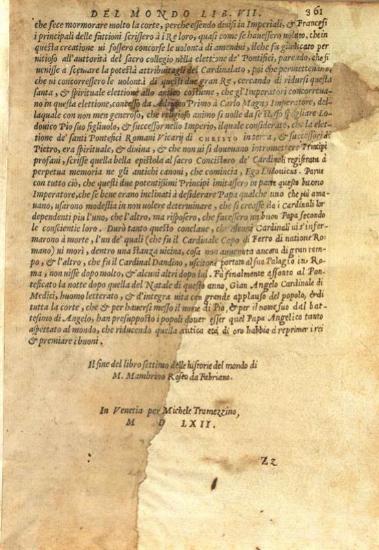 DEL MONDO LIB. VII. 361
che fece mormorare molto la corte, perche essendo divisi in Imperiali, & Francesi
i principali delle fattioni scrissero à i Re loro, quasi come se havessero notato, che in
questa creatione vi fossero concorse le volontà di amendui, ilche fu giudicato per
nitioso all'autorità del sacro collegio nella elettione de' Pontefici, parendo, che si
venisse à scemare la potestà attribuita gli del Cardinalato, piu che permettevano,
che vi concorressero le volontà di questi due gran Re, cercando di ridursi questa
santa, & spirituale elettione allo antico costume, che gl'Imperatori concorrevano
in questa elettione, concesso da Adriano Primo à Carlo Magno Imperatore, del
laquale con non men generoso, che religioso animo si volle da se stesso spogliare Lo
dovico Pio suo figliuolo, & successor nello Imperio, ilquale considerato, che la elet
tione de' santi Pontefici Romani Vicarij di CHRISTO in terra, & successori di
Pietro, era spirituale, & divina, & che non vi si dovevano intromettere Prencipi
profani, scrisse quella bella epistola al sacro Concistoro de' Cardinali registrata à
perpetua memoria ne gli antichi canoni, che comincia, Ego Ludovicus. Parue
con tutto ciò, che questi due potentissimi Principi imitassero in parte questo buono
Imperatore, che se bene erano inclinati à desiderare Papa qualche uno piu ama
uano, usarono modestia in non volere determinare, che si creasse da i Cardinali lor
dependenti piu l'uno, che l'altro, ma risposero, che facessero un buon Papa secondo
le conscientie loro. Durò tanto questo conclave, che alcuni Cardinali vi s'infer-
marono à morte, l'un de' quali (che fu il Cardinale Capo di Ferro di natione Ro-
mano) vi morì, dentro una stanza vicina, cosa non avvenuta ancora di gran tem
po, & l'altro, che fu il Cardinal Dandino, uscitone portato al suo Palagio in Ro
ma, non visse dopo molto, & alcuni altri dopo lui. Fù finalmente assonto al Pon-
tificato la notte dopo quella del Natale di questo anno, Gian Angelo Cardinale di
Medici, huomo letterato, & d'integra vita con grande applauso del popolo, & di
tutta la corte, che & per haversi messo il nome di Pio, & per il nome suo dal bat-
tesimo di Angelo, han presupposto i popoli dover esser qual Papa Angelico tanto
aspettato al mondo, che riducendo quella antica età di oro habbia à reprimer i rei
& premiare i buoni.
Il fine del libro settimo delle historie del mondo di
M. Mambrino Roseo da Fabriano.
In Venetia per Michele Tramezzino,
M D LXII.
Zz